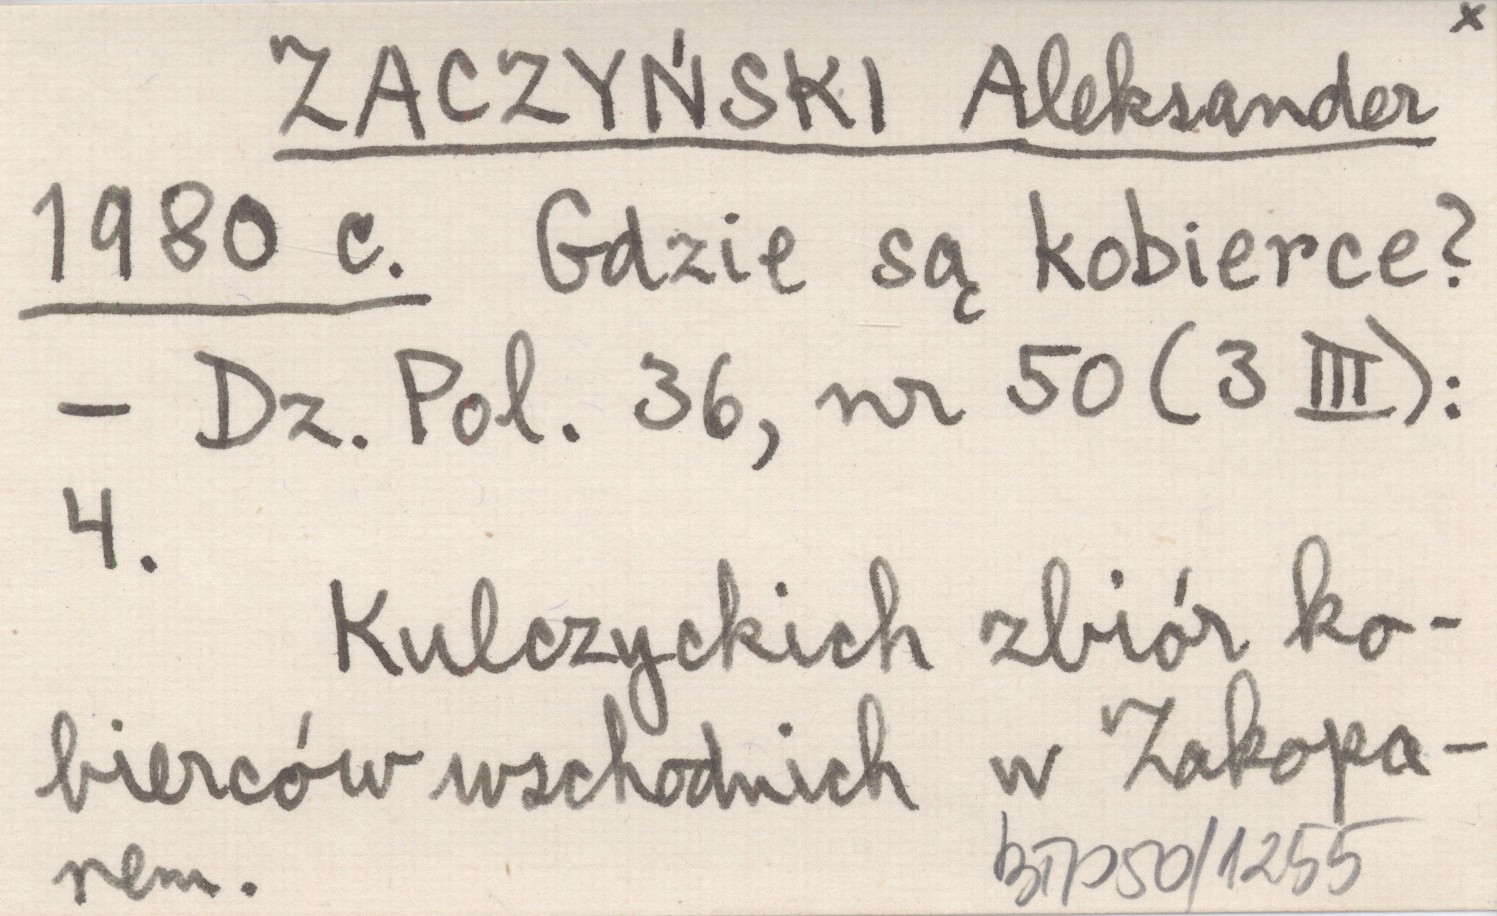 x
ZACZYŃSKI Aleksander
1980 c. Gdzie są kobierce?
– Dz. Pol. 36, nr 50 (3 III):
4.
Kulczyckich zbiór ko-
bierców wschodnich w Zakopa-
nem.
50/1255